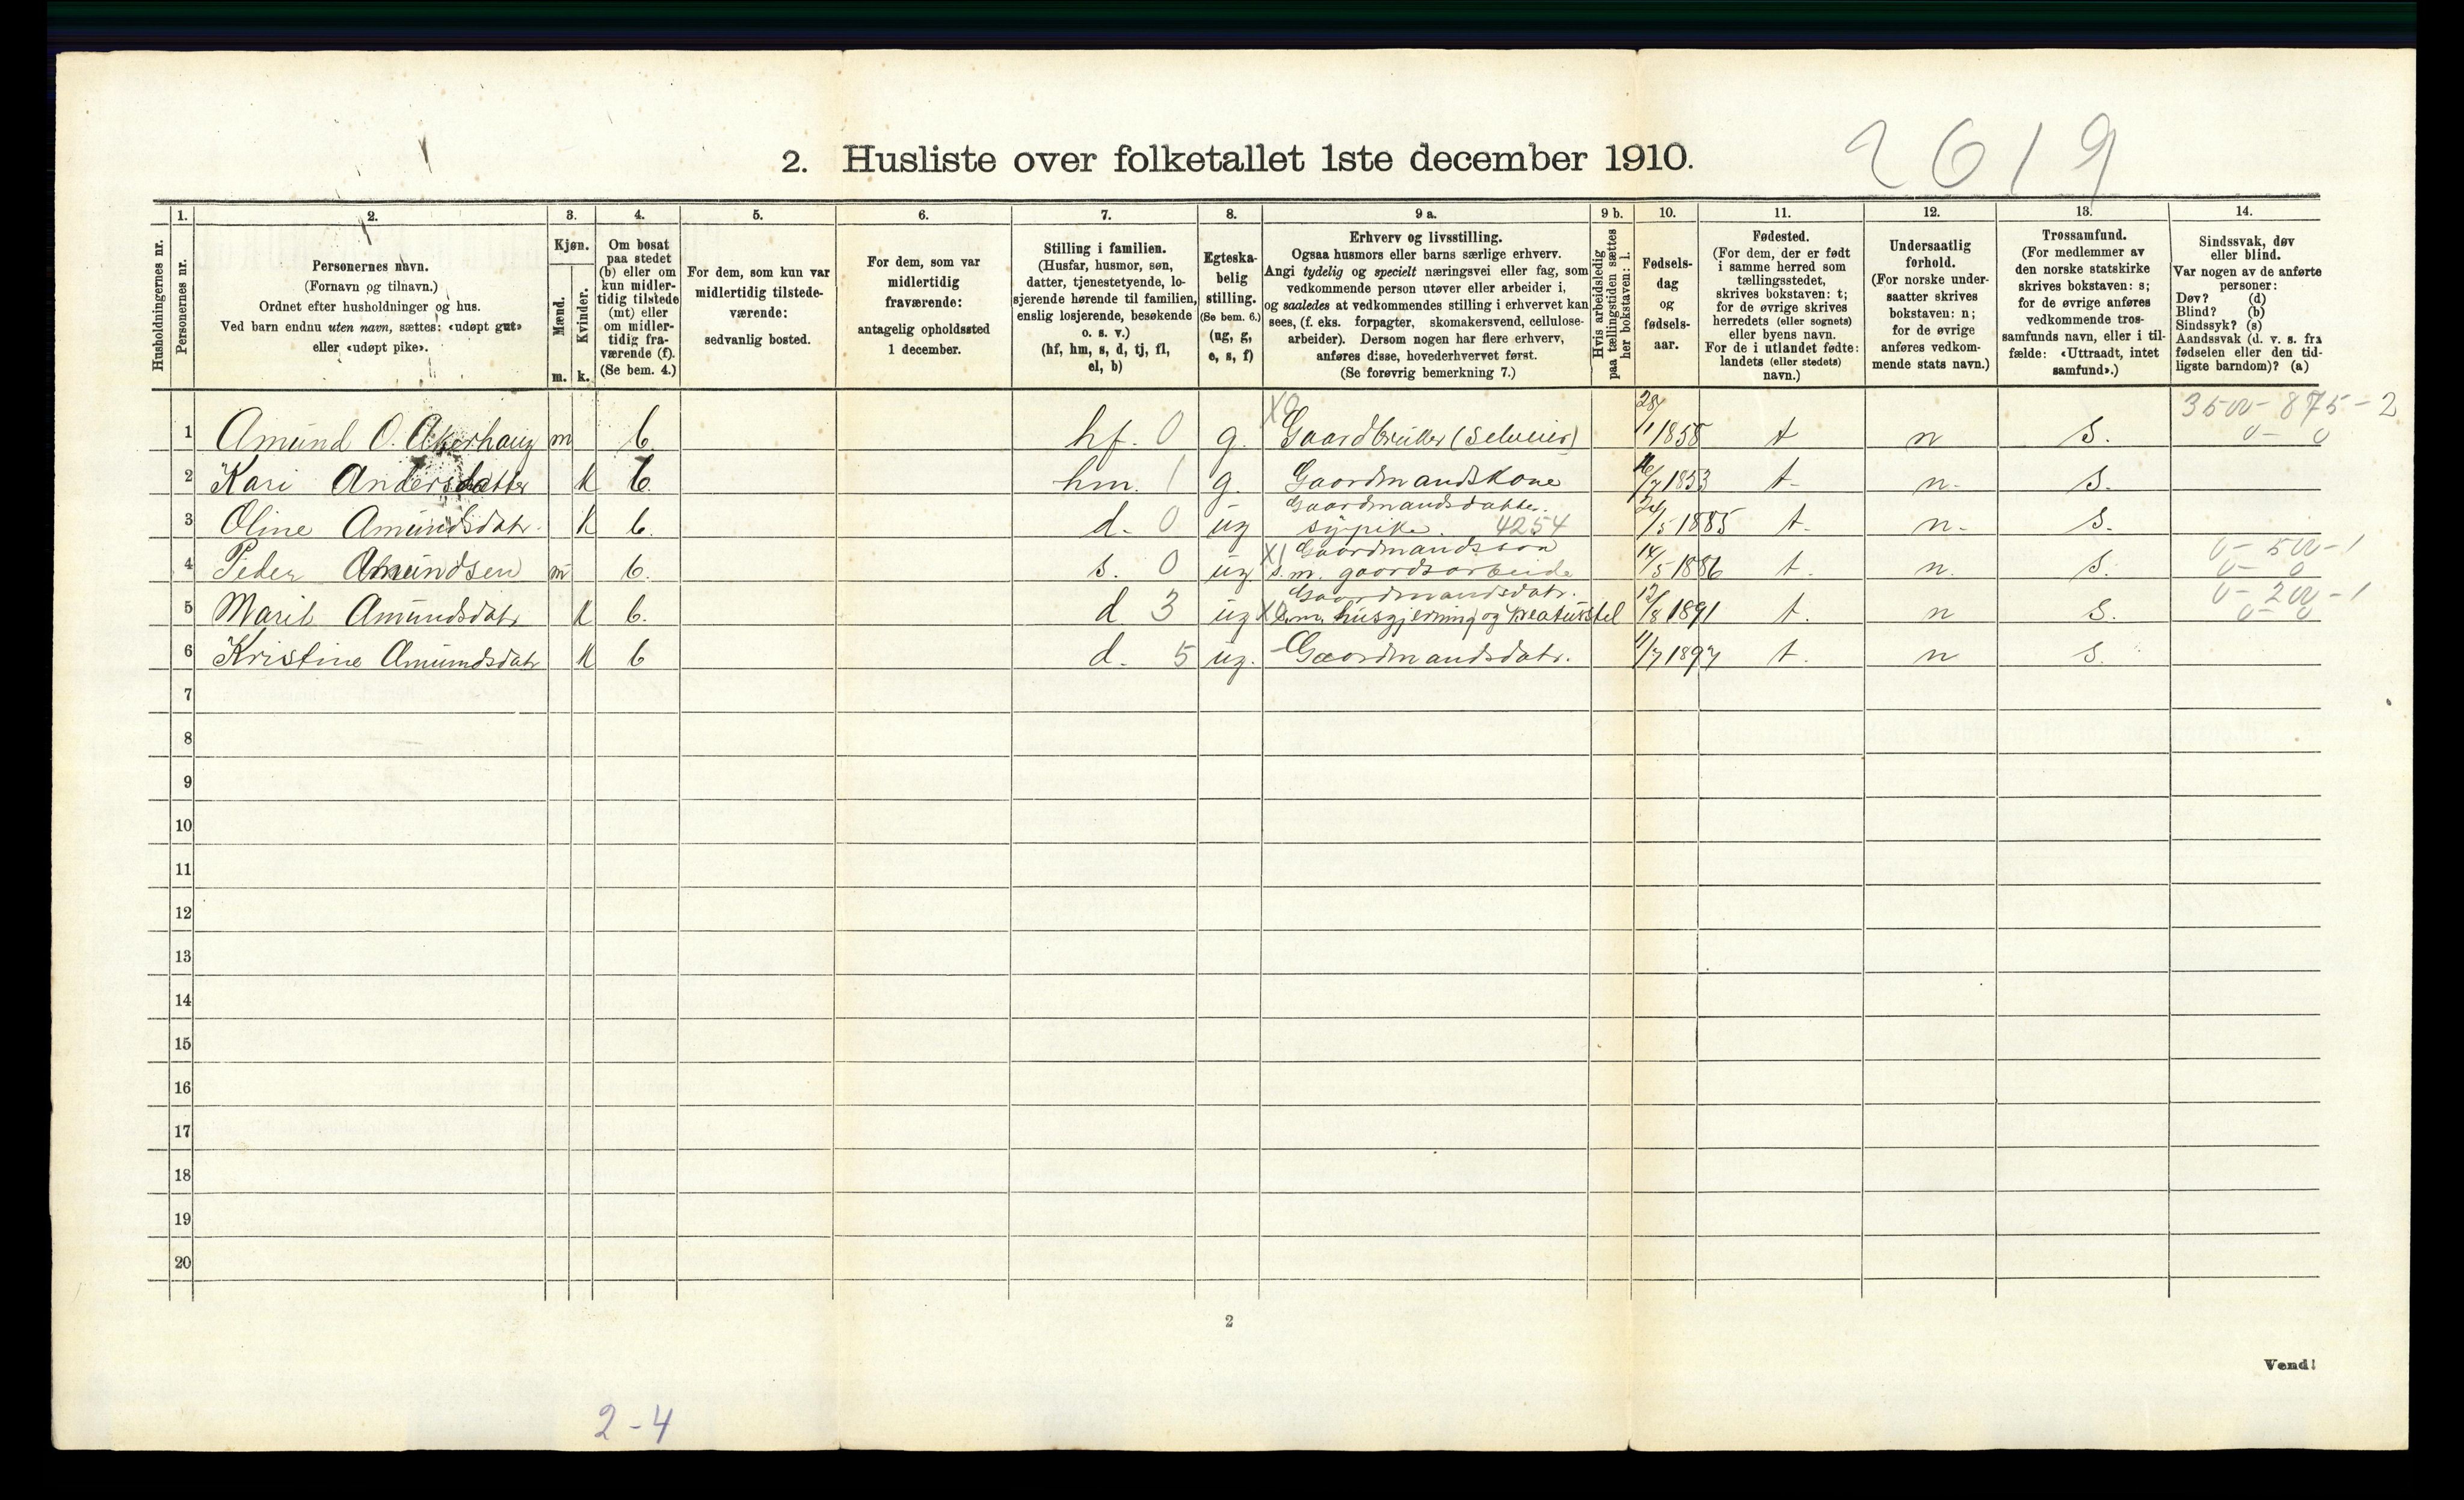 2. Husliste over folketallet 1ste december 1910.
2619
Husholdningernes nr.
1.
Personernes nr.
2.
Personernes navn.
(Fornavn og tilnavn.)
Ordnet efter husholdninger og hus.
Ved barn endnu uten navn, sættes: «udøpt gut»
eller «udøpt pike».
3.
Kjøn.
Mænd.
Kvinder.
m. k.
4.
Om bosat
paa stedet
(b) eller om
kun midler-
tidig tilstede
(mt) eller
om midler-
tidig fra-
værende (f).
(Se bem. 4.)
5.
For dem, som kun var
midlertidig tilstede-
værende:
sedvanlig bosted.
6.
For dem, som var
midlertidig
fraværende:
antagelig opholdssted
1 december.
7.
Stilling i familien.
(Husfar, husmor, søn,
datter, tjenestetyende, lo-
sjerende hørende til familien,
enslig losjerende, besøkende
o. s. v.)
(hf, hm, s, d, tj, fl,
el, b)
8.
Egteska-
belig
stilling.
(Se bem. 6.)
(ug, g,
e, s, f)
9 a.
Erhverv og livsstilling.
Ogsaa husmors eller barns særlige erhverv.
Angi tydelig og specielt næringsvei eller fag, som
vedkommende person utøver eller arbeider i,
og saaledes at vedkommendes stilling i erhvervet kan
sees, (f. eks. forpagter, skomakersvend, cellulose-
arbeider). Dersom nogen har flere erhverv,
anføres disse, hovederhvervet først.
(Se forøvrig bemerkning 7.)
9 b.
Hvis arbeidsledig
paa tællingstiden sættes
her bokstaven: l.
10.
Fødsels-
dag
og
fødsels-
aar.
11.
Fødested.
(For dem, der er født
i samme herred som
tællingsstedet,
skrives bokstaven: t;
for de øvrige skrives
herredets (eller sognets)
eller byens navn.
For de i utlandet fødte:
landets (eller stedets)
navn.)
12.
Undersaatlig
forhold.
(For norske under-
saatter skrives
bokstaven: n;
for de øvrige
anføres vedkom-
mende stats navn.)
13.
Trossamfund.
(For medlemmer av
den norske statskirke
skrives bokstaven: s;
for de øvrige anføres
vedkommende tros-
samfunds navn, eller i til-
fælde: «Uttraadt, intet
samfund».)
14.
Sindssvak, døv
eller blind.
Var nogen av de anførte
personer:
Døv? (d)
Blind? (b)
Sindssyk? (s)
Aandssvak (d. v. s. fra
fødselen eller den tid-
ligste barndom)? (a)
1 Amund O. Akerhaug m b hf. 0 g. Gaardbruker (Selveier) 28/1 1858 t n s. 3500- 875-2
0- 0
2 Kari Andersdatter k b. hm. 1 g. Gaardmandskone /7 1853 t- n- s.
3 Oline Amundsdatr. k b. d. 0 ug Gaardmandsdatter.
sypike. 4254 24/5 1885 t. n- s.
4 Peder Amundsen m b. s. 0 ug. X1 Gaardmandssøn
s.m. gaardsarbeide 14/5 1886 t. n. s. 0- 500-1
0- 0
5 Marit Amundsdatr k b. d 3 ug Gaardmandsdatr.
s.m. husgjerning og kreaturstel 12/8 1891 t. n s. 0- 200-1
0- 0
6 Kristine Amundsdatr k b d. 5 ug. Gaardmandsdatr. 11/7 1897 t. n s.
7
8
9
10
11
12
13
14
15
16
17
18
19
20
2
Vend!
2-4